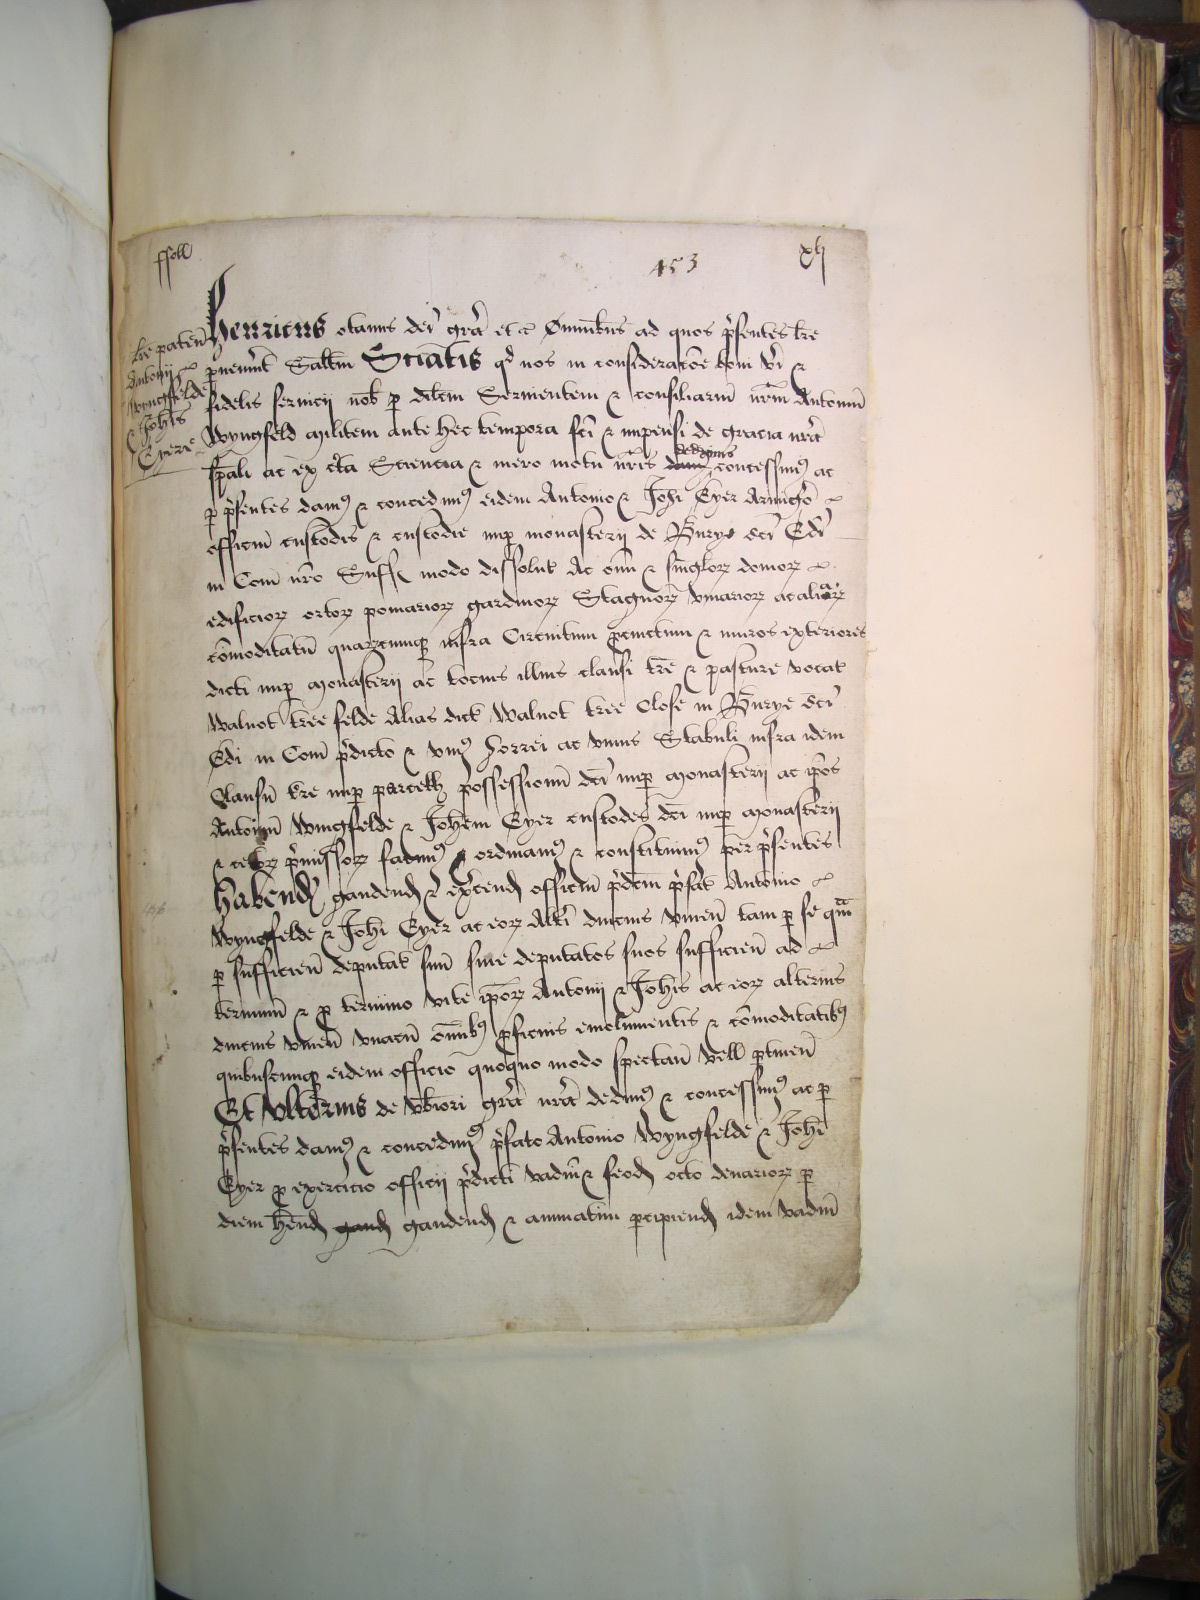 ffoll
453
xlj
lre paten
Antonij
Wyngfelde
& Johis
Eyere
Henricus octauus dei gra etc Omnibus ad quos psentes lre
puenint Saltm Sciatis qd nos in consideracoe boni vi &
fidelis seruicij nob p dilcm Seruientem & consiliarm nrm Antoniu
Wyngfeld Militem ante hec tempora fci & impensi de gracia nra
spali ac ex cta Sciencia & mero motu nris dam dedimus concessim9 ac
p psentes dam9 & concedim9 eidem Antonio & Johi Eyer Armigo
officiu custodis & custodie nup monasterij de Burye sci Edi
in Com nro Suff modo dissolut Ac oim & singlor domor
edificior ortor pomarior gardinor Stagnor vinarior ac alior
comoditatu quarcumq infra Circuitum pcinctum & muros exteriores
dicti nup Monasterij ac tocius illius clausi tre & pasture vocat
Walnot tree felde Alias dict Walnot tree Close in Burye sci
Edi in Com pdicto & vni9 horrei ac vnius Stabuli infra idem
Clausu tre nup parcell possessionu dci nup Monasterij ac ipos
Antoniu Wingfelde & Johem Eyer custodes dci nup Monasterij
& cetor pmissor facim9 ordinam9 & constituim9 per psentes
Habend gaudend & excend officiu pdcm pfat Antonio
Wyngfelde & Johi Eyer ac eor Alti diucius viuen tam p se qm
p sufficien deputat suu siue deputatos suos sufficien ad
terminu & p termino vite ipor Antonij & Johis ac eor alterius
diucius viuen vnacu omib9 pficuis emolumentis & comoditatib9
quibuscumq eidem officio quoquo modo spectan vell ptinen
Et vlterius de vbiori gra nra dedim9 & concessim9 ac p
psentes dam9 & concedim9 pfato Antonio Wyngfelde & Johi
Eyer p exercicio officij pdicti vadiu & feod octo denarior p
diem hend gaud gaudend & annuatim pcipiend idem vadiu